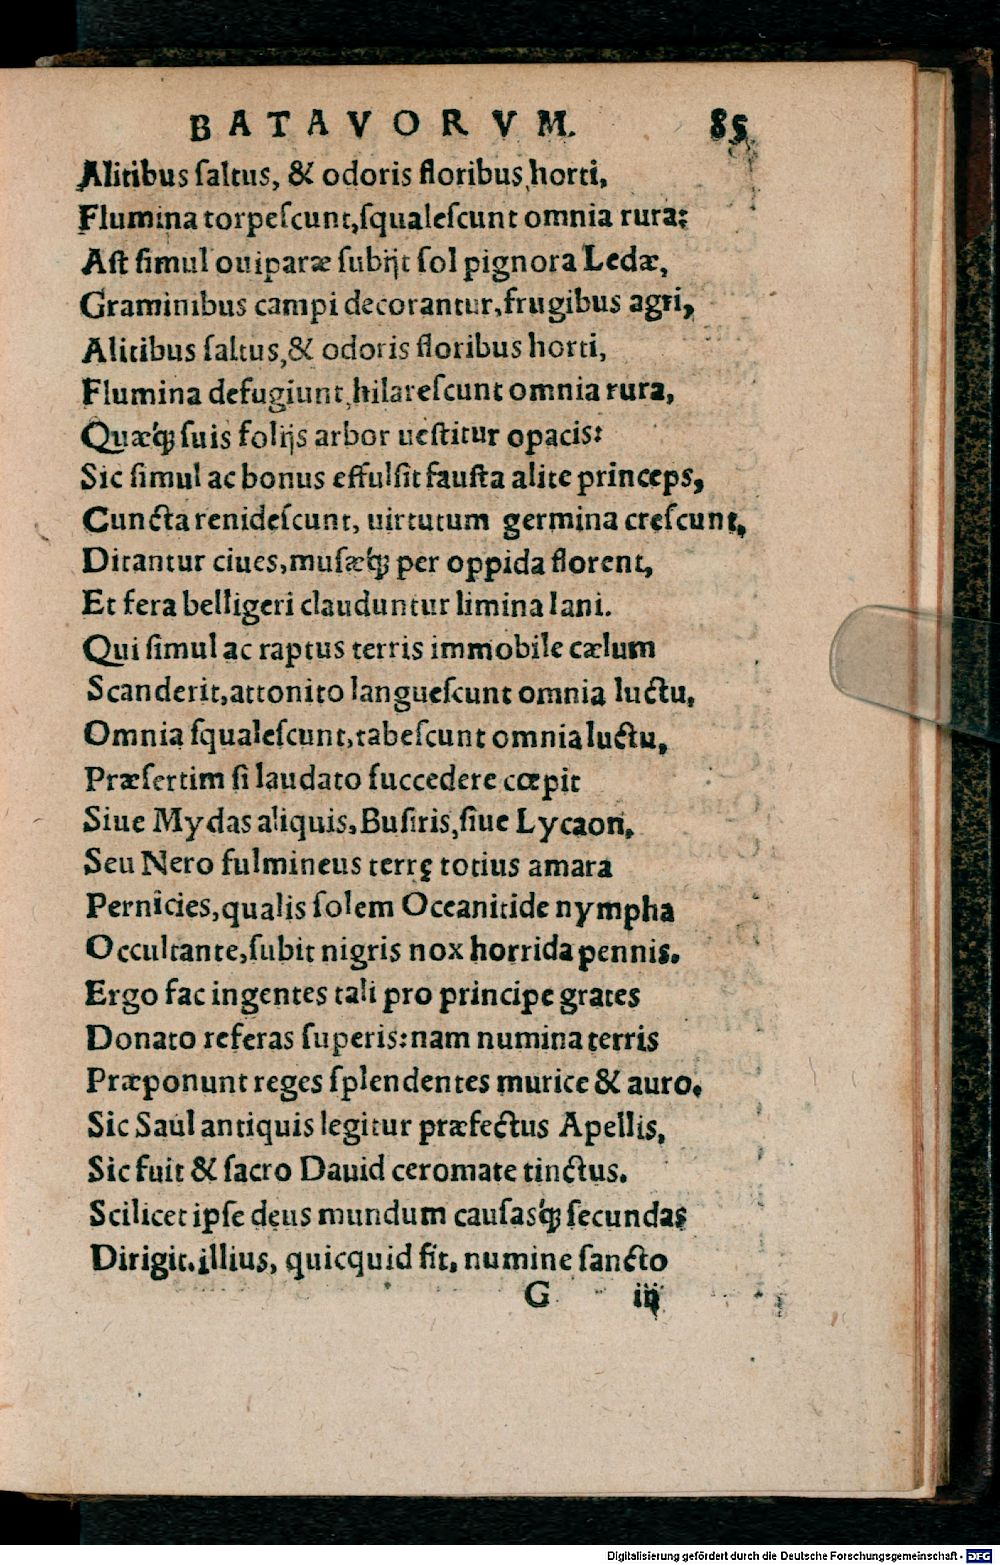 BATAVORVM. 85
Alitibus ſaltus, & odoris floribus, horti,
Flumina torpeſcunt, ſqualeſcunt omnia rura:
Aſt ſimul ouiparæ ſubijt ſol pignora Ledæ,
Graminibus campi decorantur, frugibus agri,
Alitibus ſaltus, & odoris floribus horti,
Flumina defugiunt, hilareſcunt omnia rura,
Quæq́ꝫ ſuis folijs arbor ueſtitur opacis:
Sic ſimul ac bonus effulſit fauſta alite princeps,
Cuncta renideſcunt, uirtutum germina creſcunt,
Ditantur ciues, muſæq́ꝫ per oppida florent,
Et fera belligeri clauduntur limina Iani.
Qui ſimul ac raptus terris immobile cælum
Scanderit, attonito langueſcunt omnia luctu,
Omnia ſqualeſcunt, tabeſcunt omnia luctu,
Præſertim ſi laudato ſuccedere cœpit
Siue Mydas aliquis, Buſiris, ſiue Lycaon,
Seu Nero fulmineus terrę totius amara
Pernicies, qualis ſolem Oceanitide nympha
Occultante, ſubit nigris nox horrida pennis.
Ergo fac ingentes tali pro principe grates
Donato referas ſuperis: nam numina terris
Præponunt reges ſplendentes murice & auro.
Sic Saul antiquis legitur præfectus Apellis,
Sic fuit & ſacro Dauid ceromate tinctus.
Scilicet ipſe deus mundum cauſasq́ꝫ ſecundas
Dirigit. illius, quicquid fit, numine ſancto
G iij
Digitalisierung gefördert durch die Deutsche Forschungsgemeinschaft - DFG